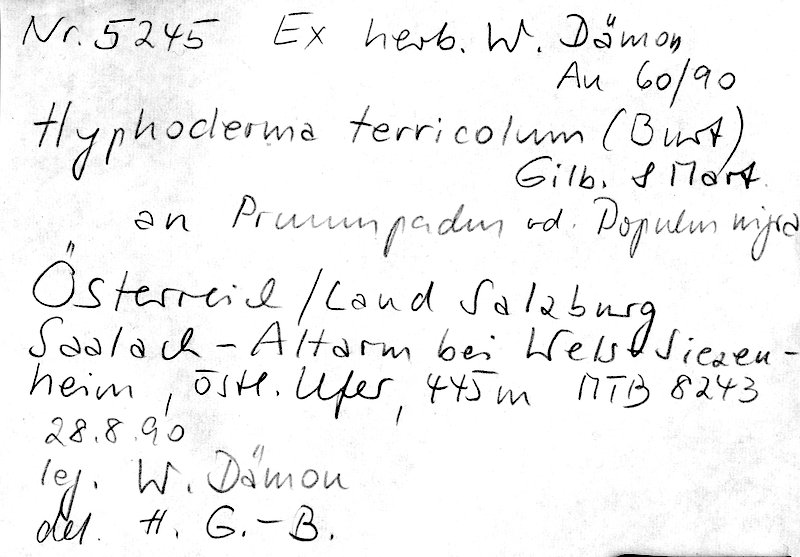 Nr. 5245 Ex herb. W. Dämon
An 60/90
Hyphoderma terricolum (Burt)
Gilb. & Mart.
an Prunus padus od. Populus nigra
Österreich / Land Salzburg
Saalach - Altarm bei Wals-Siezen-
heim, östl. Ufer, 445m MTB 8243
28.8.90
leg. W. Dämon
det. H. G.-B.